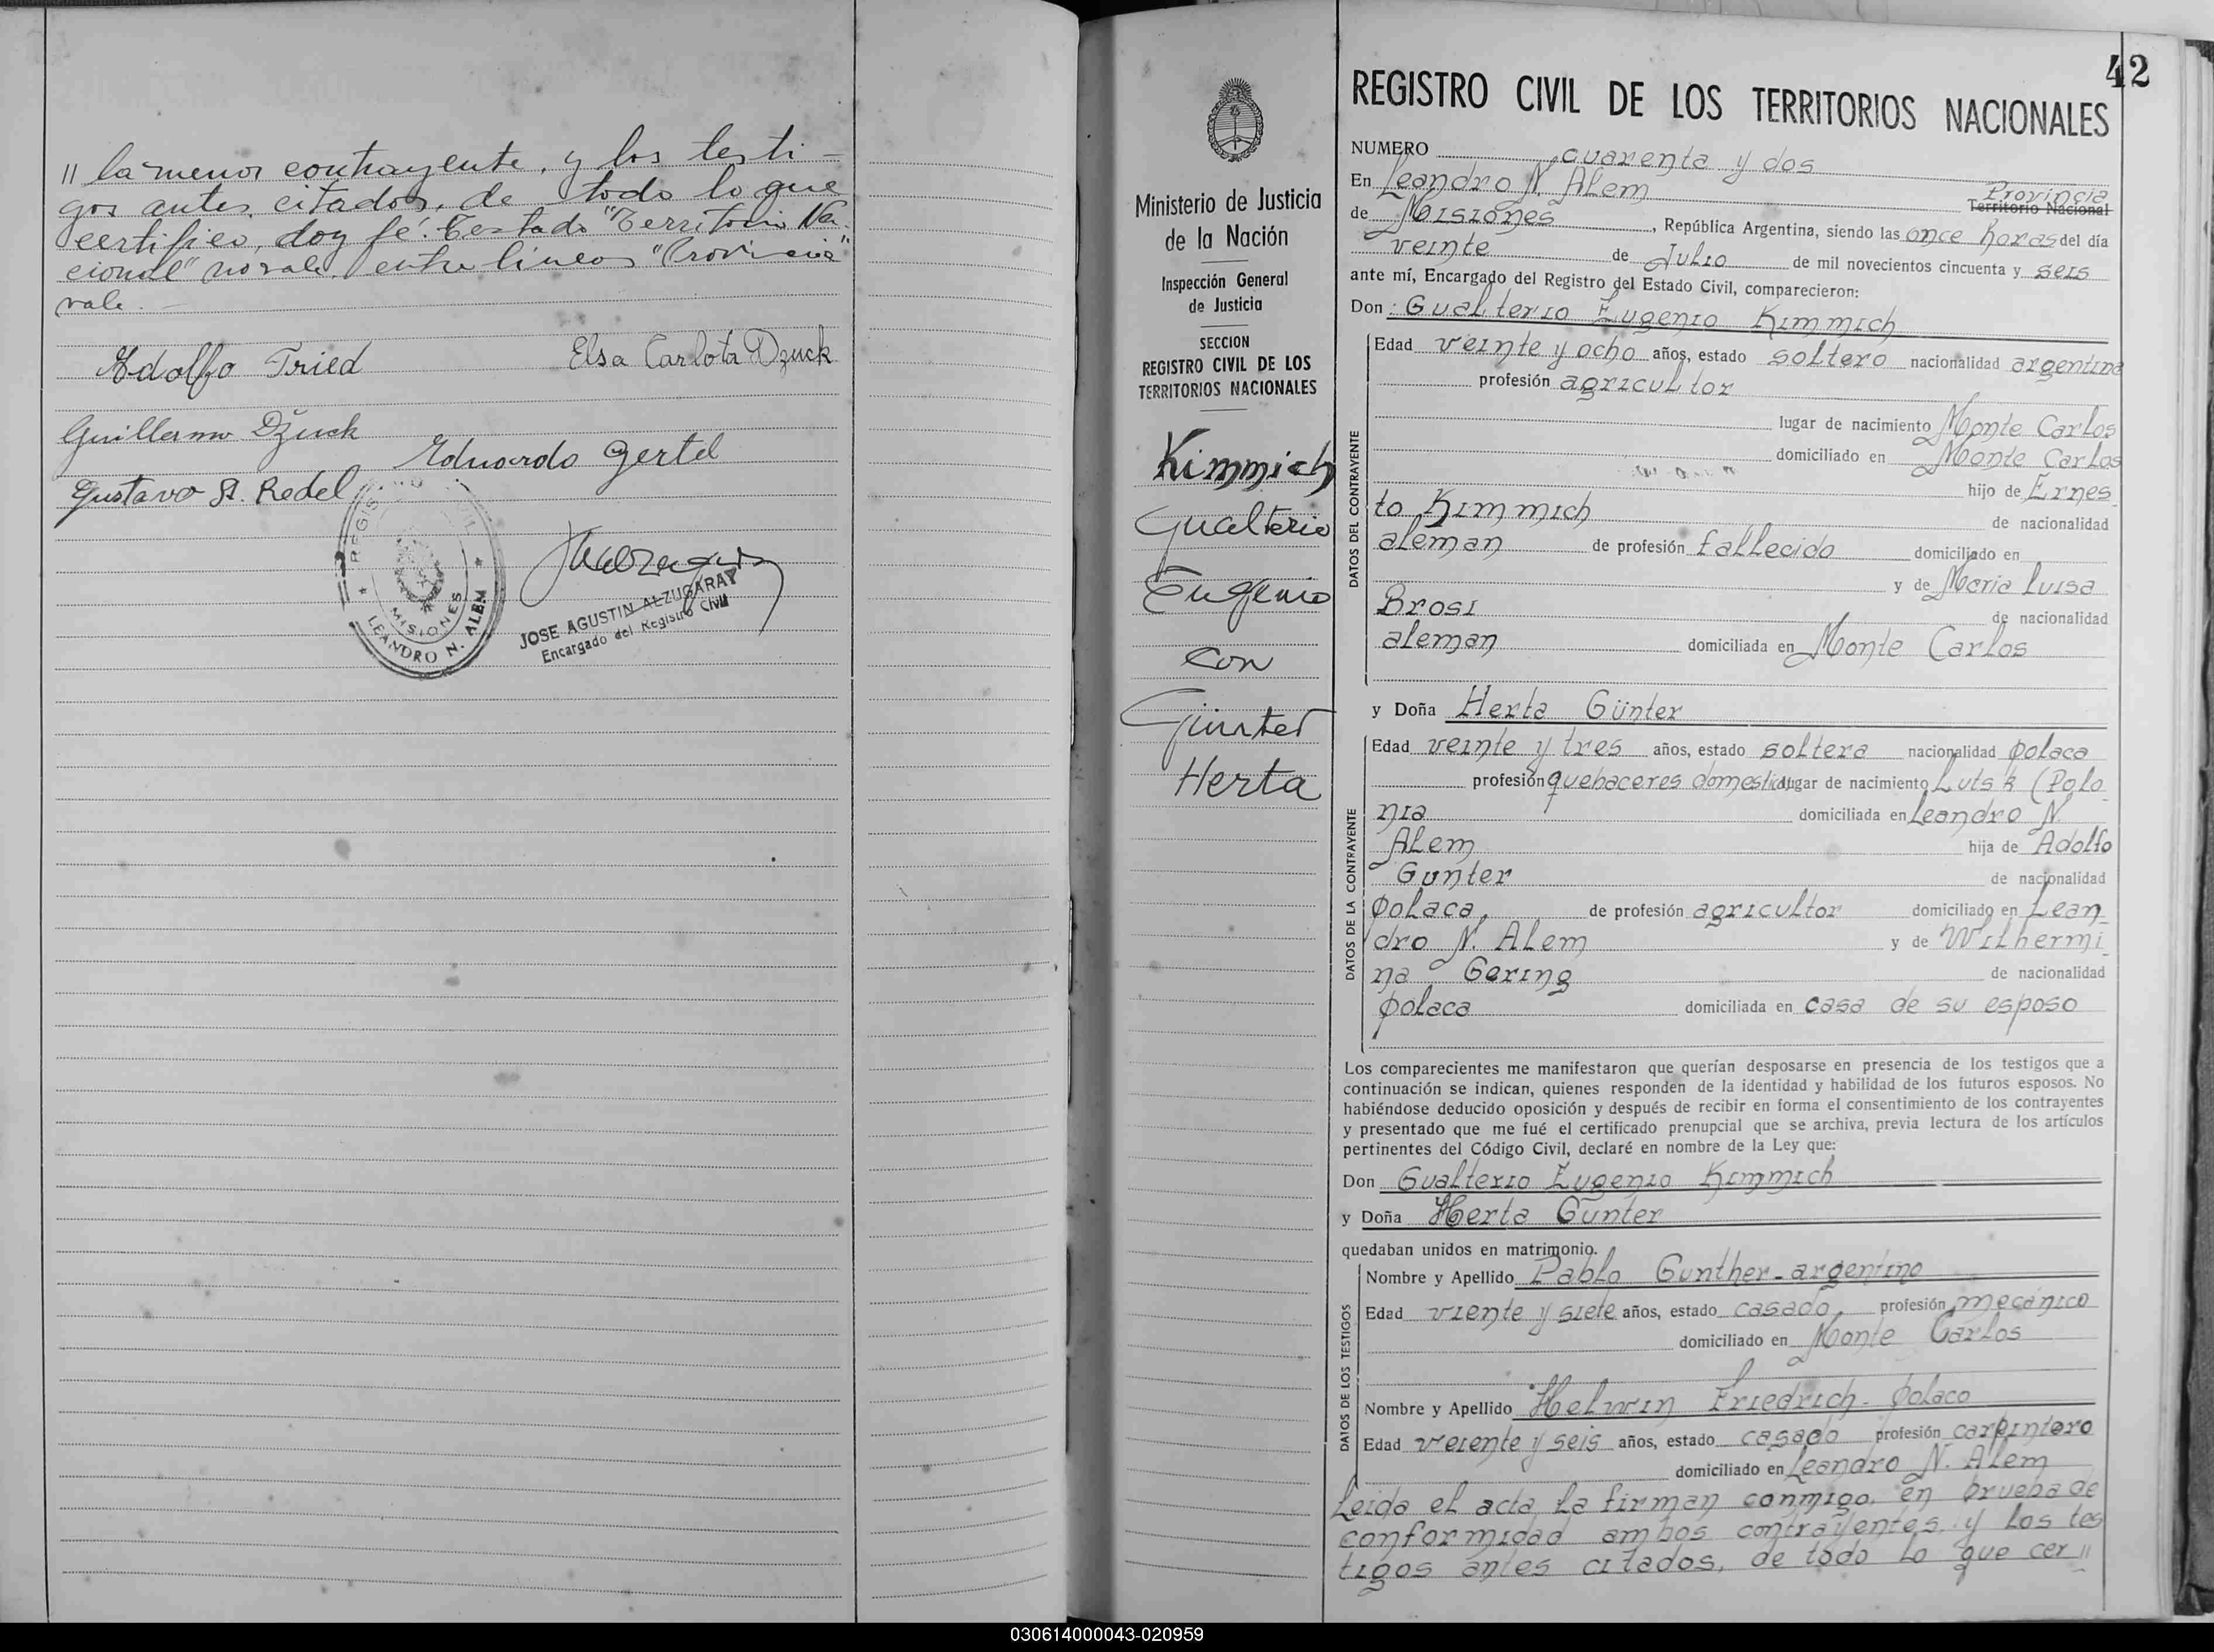 " la menor contrayente, y los testi-
gos antes citados, de todo lo que
certifico, doy fé. Testado "Territorio Na-
cional" no vale. entre lineas "Provincia"
vale. -
Adolfo Fried Elsa Carlota Dzuck
Guillermo Dzuck
Eduardo Gertel
Gustavo A. Redel
REGISTRO CIVIL
MISIONES
LEANDRO N. ALEM
JOSE AGUSTIN ALZUGARAY
Encargado del Registro Civil
42
Ministerio de Justicia
de la Nación
Inspección General
de Justicia
SECCION
REGISTRO CIVIL DE LOS
TERRITORIOS NACIONALES
Kimmich
Gualterio
Eugenio
con
Günter
Herta
REGISTRO CIVIL DE LOS TERRITORIOS NACIONALES
NUMERO cuarenta y dos
En Leandro N. Alem Provincia Territorio Nacional
de Misiones, República Argentina, siendo las once horas del día
veinte de Julio de mil novecientos cincuenta y seis
ante mí, Encargado del Registro del Estado Civil, comparecieron:
Don: Gualterio Eugenio Kimmich
DATOS DEL CONTRAYENTE
Edad veinte y ocho años, estado soltero nacionalidad argentina
profesión agricultor
lugar de nacimiento Monte Carlos
domiciliado en Monte Carlos
hijo de Ernes-
to Kimmich de nacionalidad
aleman de profesión fallecido domiciliado en
y de Maria Luisa
Brosi de nacionalidad
aleman domiciliada en Monte Carlos
y Doña Herta Günter
DATOS DE LA CONTRAYENTE
Edad veinte y tres años, estado soltera nacionalidad polaca
profesión quehaceres domestico lugar de nacimiento Lutsk (Polo-
nia domiciliada en Leandro N.
Alem hija de Adolfo
Gunter de nacionalidad
polaca, de profesión agricultor domiciliado en Lean-
dro N. Alem y de Wilhermi-
na Gering de nacionalidad
polaca domiciliada en casa de su esposo
Los comparecientes me manifestaron que querían desposarse en presencia de los testigos que a
continuación se indican, quienes responden de la identidad y habilidad de los futuros esposos. No
habiéndose deducido oposición y después de recibir en forma el consentimiento de los contrayentes
y presentado que me fué el certificado prenupcial que se archiva, previa lectura de los artículos
pertinentes del Código Civil, declaré en nombre de la Ley que:
Don Gualterio Eugenio Kimmich
y Doña Herta Gunter
quedaban unidos en matrimonio.
DATOS DE LOS TESTIGOS
Nombre y Apellido Pablo Gunther - argentino
Edad viente y siete años, estado casado, profesión mecánico
domiciliado en Monte Carlos
Nombre y Apellido Helwin Friedrich - polaco
Edad veiente y seis años, estado casado profesión carpintero
domiciliado en Leandro N. Alem
Leida el acta la firman conmigo, en prueba de
conformidad ambos contrayentes, y los tes
tigos antes citados, de todo lo que cer "
030614000043-020959